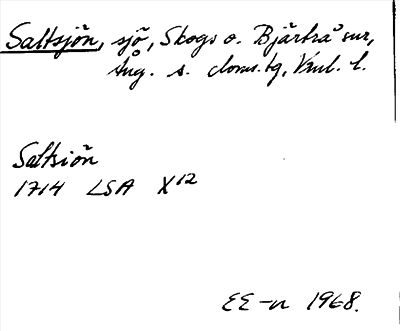 Saltsjön, sjö, Skogs o. Bjärtrå snr,
Ång. s. doms.tg, Vnl. l.
Saltsiön
1714 LSA X12
EE-n 1968.